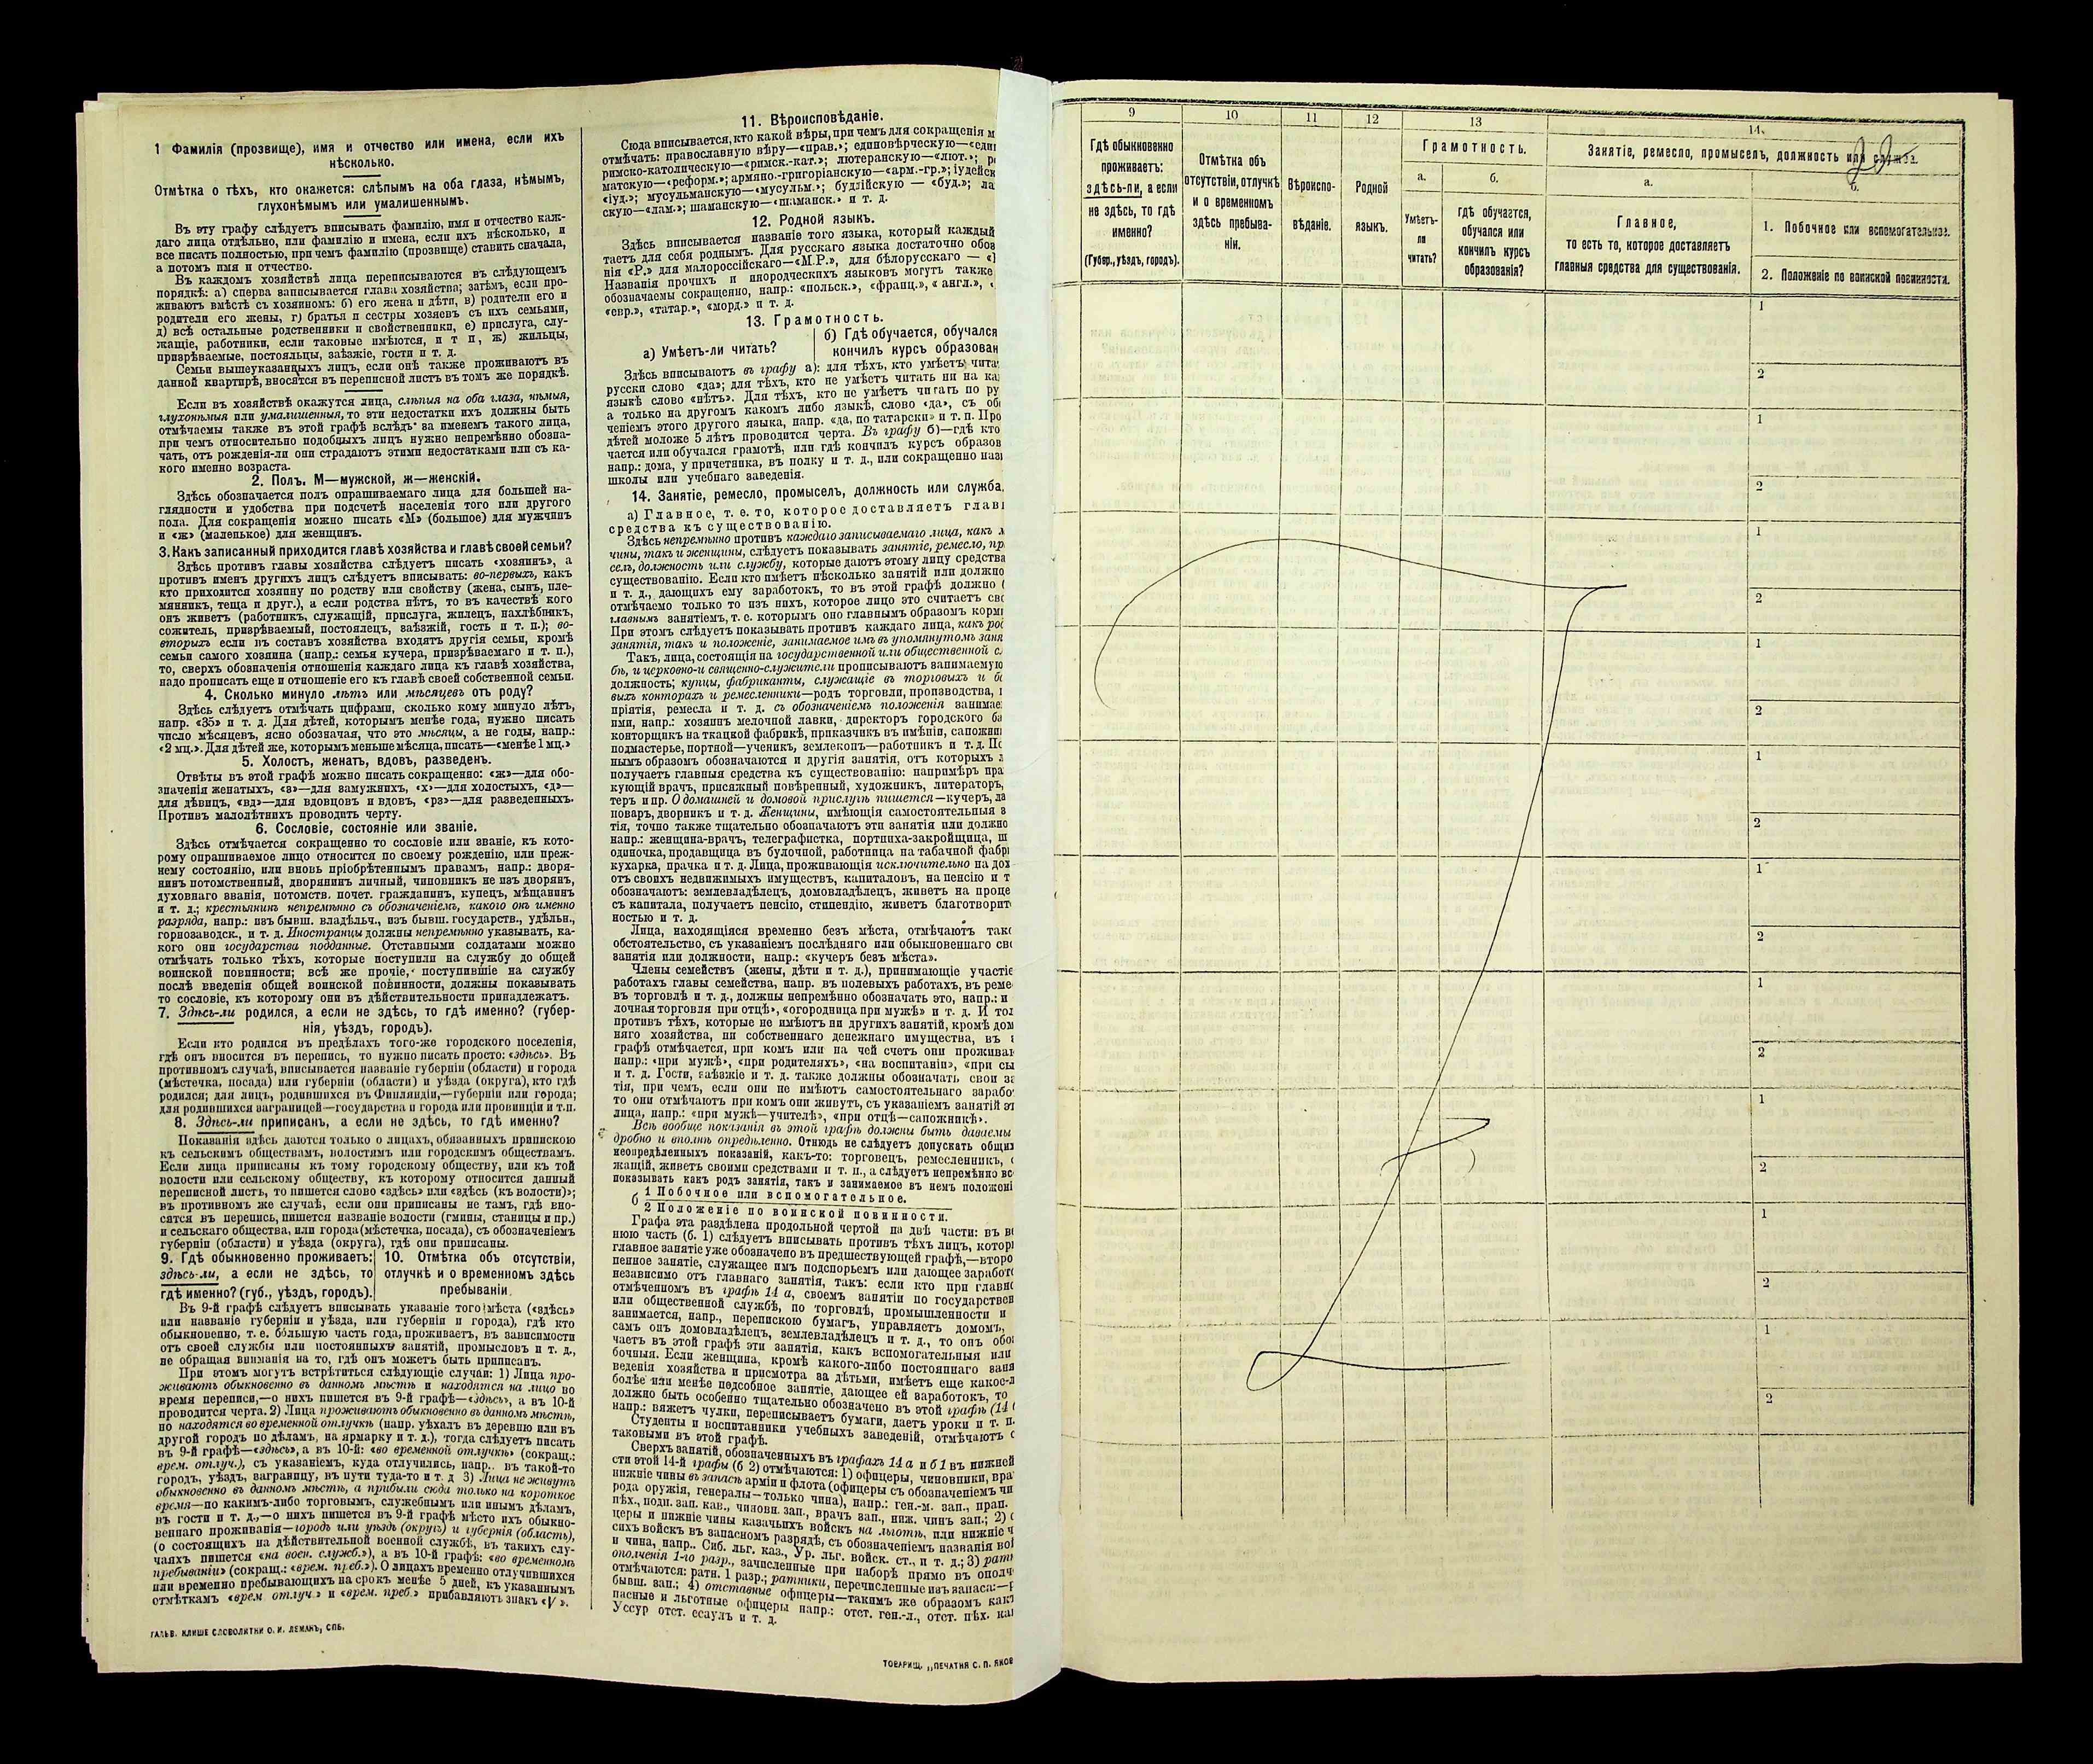 1 Фамилія (прозвище), имя и отчество или имена, если ихъ
нѣсколько.
Отмѣтка о тѣхъ, кто окажется: слѣпымъ на оба глаза, нѣмымъ,
глухонѣмымъ или умалишеннымъ.
Въ эту графу слѣдуетъ вписывать фамилію, имя и отчество каж-
даго лица отдѣльно, или фамилію и имена, если ихъ нѣсколько, и
все писать полностью, при чемъ фамилію (прозвище) ставить сначала,
а потомъ имя и отчество.
Въ каждомъ хозяйствѣ лица переписываются въ слѣдующемъ
порядкѣ: а) сперва записывается глава хозяйства; затѣмъ, если про-
живаютъ вмѣстѣ съ хозяиномъ: б) его жена и дѣти, в) родители его и
родители его жены, г) братья и сестры хозяевъ съ ихъ семьями,
д) всѣ остальные родственники и свойственники, е) прислуга, слу-
жащіе, работники, если таковые имѣются, и т п, ж) жильцы,
призрѣваемые, постояльцы, заѣзжіе, гости и т. д.
Семьи вышеуказанныхъ лицъ, если онѣ также проживаютъ въ
данной квартирѣ, вносятся въ переписной листъ въ томъ же порядкѣ.
Если въ хозяйствѣ окажутся лица, слѣпыя на оба глаза, нѣмыя,
глухонѣмыя или умалишенныя, то эти недостатки ихъ должны быть
отмѣчаемы также въ этой графѣ вслѣдъ за именемъ такого лица,
при чемъ относительно подобныхъ лицъ нужно непремѣнно обозна-
чать, отъ рожденія-ли они страдаютъ этими недостатками или съ ка-
кого именно возраста.
2. Полъ. М—мужской, ж—женскій.
Здѣсь обозначается полъ опрашиваемаго лица для большей на-
глядности и удобства при подсчетѣ населенія того или другого
пола. Для сокращенія можно писать «М» (большое) для мужчинъ
и «ж» (маленькое) для женщинъ.
3. Какъ записанный приходится главѣ хозяйства и главѣ своей семьи?
Здѣсь противъ главы хозяйства слѣдуетъ писать «хозяинъ», а
противъ именъ другихъ лицъ слѣдуетъ вписывать: во-первыхъ, какъ
кто приходится хозяину по родству или свойству (жена, сынъ, пле-
мянникъ, теща и друг.), а если родства нѣтъ, то въ качествѣ кого
онъ живетъ (работникъ, служащій, прислуга, жилецъ, нахлѣбникъ,
сожитель, призрѣваемый, постоялецъ, заѣзжій, гость и т. п.); во-
вторыхъ если въ составъ хозяйства входятъ другія семьи, кромѣ
семьи самого хозяина (напр.: семья кучера, призрѣваемаго и т. п.),
то, сверхъ обозначенія отношенія каждаго лица къ главѣ хозяйства,
надо прописать еще и отношеніе его къ главѣ своей собственной семьи.
4. Сколько минуло лѣтъ или мѣсяцевъ отъ роду?
Здѣсь слѣдуетъ отмѣчать цифрами, сколько кому минуло лѣтъ,
напр. «35» и т. д. Для дѣтей, которымъ менѣе года, нужно писать
число мѣсяцевъ, ясно обозначая, что это мѣсяцы, а не годы, напр.:
«2 мц.». Для дѣтей же, которымъ меньше мѣсяца, писать—«менѣе 1 мц.»
5. Холостъ, женатъ, вдовъ, разведенъ.
Отвѣты въ этой графѣ можно писать сокращенно: «ж»—для обо-
значенія женатыхъ, «з»—для замужнихъ, «х»—для холостыхъ, «д»—
для дѣвицъ, «вд»—для вдовцовъ и вдовъ, «рз»—для разведенныхъ.
Противъ малолѣтнихъ проводить черту.
6. Сословіе, состояніе или званіе.
Здѣсь отмѣчается сокращенно то сословіе или званіе, къ кото-
рому опрашиваемое лицо относится по своему рожденію, или преж-
нему состоянію, или вновь пріобрѣтеннымъ правамъ, напр.: дворя-
нинъ потомственный, дворянинъ личный, чиновникъ не изъ дворянъ,
духовнаго званія, потомств. почет. гражданинъ, купецъ, мѣщанинъ
и т. д.; крестьянинъ непремѣнно съ обозначеніемъ, какого онъ именно
разряда, напр.: изъ бывш. владѣльч., изъ бывш. государств., удѣльн.,
горнозаводск., и т. д. Иностранцы должны непремѣнно указывать, ка-
кого они государства подданные. Отставными солдатами можно
отмѣчать только тѣхъ, которые поступили на службу до общей
воинской повинности; всѣ же прочіе, поступившіе на службу
послѣ введенія общей воинской повинности, должны показывать
то сословіе, къ которому они въ дѣйствительности принадлежатъ.
7. Здѣсь-ли родился, а если не здѣсь, то гдѣ именно? (губер-
нія, уѣздъ, городъ).
Если кто родился въ предѣлахъ того-же городского поселенія,
гдѣ онъ вносится въ перепись, то нужно писать просто: «здѣсь». Въ
противномъ случаѣ, вписывается названіе губерніи (области) и города
(мѣстечка, посада) или губерніи (области) и уѣзда (округа), кто гдѣ
родился; для лицъ, родившихся въ Финляндіи,—губерніи или города;
для родившихся заграницей—государства и города или провинціи и т.п.
8. Здѣсь-ли приписанъ, а если не здѣсь, то гдѣ именно?
Показанія здѣсь даются только о лицахъ, обязанныхъ припискою
къ сельскимъ обществамъ, волостямъ или городскимъ обществамъ.
Если лица приписаны къ тому городскому обществу, или къ той
волости или сельскому обществу, къ которому относится данный
переписной листъ, то пишется слово «здѣсь» или «здѣсь (къ волости)»;
въ противномъ же случаѣ, если они приписаны не тамъ, гдѣ вно-
сятся въ перепись, пишется названіе волости (гмины, станицы и пр.)
и сельскаго общества, или города (мѣстечка, посада), съ обозначеніемъ
губерніи (области) и уѣзда (округа), гдѣ они приписаны.
9. Гдѣ обыкновенно проживаетъ:
здѣсь-ли, а если не здѣсь, то
гдѣ именно? (губ., уѣздъ, городъ).
10. Отмѣтка объ отсутствіи,
отлучкѣ и о временномъ здѣсь
пребываніи
Въ 9-й графѣ слѣдуетъ вписывать указаніе того мѣста («здѣсь»
или названіе губерніи и уѣзда, или губерніи и города), гдѣ кто
обыкновенно, т. е. большую часть года, проживаетъ, въ зависимости
отъ своей службы или постоянныхъ занятій, промысловъ и т. д.,
не обращая вниманія на то, гдѣ онъ можетъ быть приписанъ.
При этомъ могутъ встрѣтиться слѣдующіе случаи: 1) Лица про-
живаютъ обыкновенно въ данномъ мѣстѣ и находятся на лицо во
время переписи,—о нихъ пишется въ 9-й графѣ—«здѣсь», а въ 10-й
проводится черта. 2) Лица проживаютъ обыкновенно въ данномъ мѣстѣ,
но находятся во временной отлучкѣ (напр. уѣхалъ въ деревню или въ
другой городъ по дѣламъ, на ярмарку и т. д.), тогда слѣдуетъ писать
въ 9-й графѣ—«здѣсь», а въ 10-й: «во временной отлучкѣ» (сокращ.:
врем. отлуч.), съ указаніемъ, куда отлучились, напр.. въ такой-то
городъ, уѣздъ, заграницу, въ пути туда-то и т. д 3) Лица не живутъ
обыкновенно въ данномъ мѣстѣ, а прибыли сюда только на короткое
время—по какимъ-либо торговымъ, служебнымъ или инымъ дѣламъ,
въ гости и т. д.,—о нихъ пишется въ 9-й графѣ мѣсто ихъ обыкно-
веннаго проживанія—городъ или уѣздъ (округъ) и губернія (область),
(о состоящихъ на дѣйствительной военной службѣ, въ такихъ слу-
чаяхъ пишется «на воен. служб.»), а въ 10-й графѣ: «во временномъ
пребываніи» (сокращ.: «врем. преб.»). О лицахъ временно отлучившихся
или временно пребывающихъ на срокъ менѣе 5 дней, къ указаннымъ
отмѣткамъ «врем отлуч.» и «врем. преб.» прибавляютъ знакъ «V».
ГАЛЬВ. КЛИШЕ СЛОВОЛИТНИ О. И. ЛЕМАНЪ, СПБ.
11. Вѣроисповѣданіе.
Сюда вписывается, кто какой вѣры, при чемъ для сокращенія м
отмѣчать: православную вѣру—«прав.»; единовѣрческую—«един
римско-католическую—«римск.-кат.»; лютеранскую—«лют.»; ре
матскую—«реформ.»; армяно.-григоріанскую—«арм.-гр.»; іудейск
«іуд.»; мусульманскую—«мусульм.»; будзійскую — «буд.»; ла
скую—«лам.»; шаманскую—«шаманск.» и т. д.
12. Родной языкъ.
Здѣсь вписывается названіе того языка, который каждый
таетъ для себя роднымъ. Для русскаго языка достаточно обоз
нія «Р.» для малороссійскаго—«М.Р.», для бѣлорусскаго — «
Названія прочихъ и инородческихъ языковъ могутъ также
обозначаемы сокращенно, напр.: «польск.», «франц.», « англ.»,
«евр.», «татар.», «морд.» и т. д.
13. Грамотность.
а) Умѣетъ-ли читать?
б) Гдѣ обучается, обучался
кончилъ курсъ образован
Здѣсь вписываютъ въ графу а): для тѣхъ, кто умѣетъ чита
русски слово «да»; для тѣхъ, кто не умѣетъ читать ни на ка
языкѣ слово «нѣтъ». Для тѣхъ, кто не умѣетъ читать по ру
а только на другомъ какомъ либо языкѣ, слово «да», съ об
ченіемъ этого другого языка, напр. «да, по татарски» и т. п. Про
дѣтей моложе 5 лѣтъ проводится черта. Въ графу б)—гдѣ кто
чается или обучался грамотѣ, или гдѣ кончилъ курсъ образов
напр.: дома, у причетника, въ полку и т. д., или сокращенно наз
школы или учебнаго заведенія.
14. Занятіе, ремесло, промыселъ, должность или служба.
а) Главное, т. е. то, которое доставляетъ глав
средства къ существованію.
Здѣсь непремѣнно противъ каждаго записываемаго лица, какъ м
чины, такъ и женщины, слѣдуетъ показывать занятіе, ремесло, пр
селъ, должность или службу, которые даютъ этому лицу средства
существованію. Если кто имѣетъ нѣсколько занятій или должно
и т. д., дающихъ ему заработокъ, то въ этой графѣ должно
отмѣчаемо только то изъ нихъ, которое лицо это считаетъ сво
главнымъ занятіемъ, т. е. которымъ оно главнымъ образомъ корм
При этомъ слѣдуетъ показывать противъ каждаго лица, какъ род
занятія, такъ и положеніе, занимаемое имъ въ упомянутомъ заня
Такъ, лица, состоящія на государственной или общественной с
бѣ, и церковно-и священно-служители прописываютъ занимаемую
должность; купцы, фабриканты, служащіе въ торговыхъ и б
выхъ конторахъ и ремесленники—родъ торговли, производства,
пріятія, ремесла и т. д. съ обозначеніемъ положенія занимае
ими, напр.: хозяинъ мелочной лавки, директоръ городского ба
конторщикъ на ткацкой фабрикѣ, приказчикъ въ имѣніи, сапожни
подмастерье, портной—ученикъ, землекопъ—работникъ и т. д. По
нымъ образомъ обозначаются и другія занятія, отъ которыхъ
получаетъ главныя средства къ существованію: напримѣръ пра
кующій врачъ, присяжный повѣренный, художникъ, литераторъ,
теръ и пр. О домашней и домовой прислугѣ пишется—кучеръ, ла
поваръ, дворникъ и т. д. Женщины, имѣющія самостоятельныя з
тія, точно также тщательно обозначаютъ эти занятія или должно
напр.: женщина-врачъ, телеграфистка, портниха-закройщица, ш
одиночка, продавщица въ булочной, работница на табачной фабр
кухарка, прачка и т. д. Лица, проживающія исключительно на дох
отъ своихъ недвижимыхъ имуществъ, капиталовъ, на пенсію и т
обозначаютъ: землевладѣлецъ, домовладѣлецъ, живетъ на проце
съ капитала, получаетъ пенсію, стипендію, живетъ благотворит
ностью и т. д.
Лица, находящіяся временно безъ мѣста, отмѣчаютъ так
обстоятельство, съ указаніемъ послѣдняго или обыкновеннаго св
занятія или должности, напр.: «кучеръ безъ мѣста».
Члены семействъ (жены, дѣти и т. д.), принимающіе участіе
работахъ главы семейства, напр. въ полевыхъ работахъ, въ реме
въ торговлѣ и т. д., должны непремѣнно обозначать это, напр.:
лочная торговля при отцѣ», «огородница при мужѣ» и т. д. И тол
противъ тѣхъ, которые не имѣютъ ни другихъ занятій, кромѣ дом
няго хозяйства, ни собственнаго денежнаго имущества, въ
графѣ отмѣчается, при комъ или на чей счетъ они прожива
напр.: «при мужѣ», «при родителяхъ», «на воспитаніи», «при сы
и т. д. Гости, заѣзжіе и т. д. также должны обозначать свои за
тія, при чемъ, если они не имѣютъ самостоятельнаго зарабо
то они отмѣчаютъ при комъ они живутъ, съ указаніемъ занятій эт
лица, напр.: «при мужѣ—учителѣ», «при отцѣ—сапожникѣ».
Всѣ вообще показанія въ этой графѣ должны быть даваемы
дробно и вполнѣ опредѣленно. Отнюдь не слѣдуетъ допускать общи
неопредѣленныхъ показаній, какъ-то: торговецъ, ремесленникъ,
жащій, живетъ своими средствами и т. п., а слѣдуетъ непремѣнно вс
показывать какъ родъ занятія, такъ и занимаемое въ немъ положені
б
1 Побочное или вспомогательное.
2 Положеніе по воинской повинности.
Графа эта раздѣлена продольной чертой на двѣ части: въ ве
нюю часть (б. 1) слѣдуетъ вписывать противъ тѣхъ лицъ, котор
главное занятіе уже обозначено въ предшествующей графѣ,—второ
пенное занятіе, служащее имъ подспорьемъ или дающее заработо
независимо отъ главнаго занятія, такъ: если кто при главно
отмѣченномъ въ графѣ 14 а, своемъ занятіи по государствен
или общественной службѣ, по торговлѣ, промышленности и
занимается, напр., перепискою бумагъ, управляетъ домомъ,
самъ онъ домовладѣлецъ, землевладѣлецъ и т. д., то онъ обо
чаетъ въ этой графѣ эти занятія, какъ вспомогательныя или
бочныя. Если женщина, кромѣ какого-либо постояннаго заня
веденія хозяйства и присмотра за дѣтьми, имѣетъ еще какое-л
болѣе или менѣе подсобное занятіе, дающее ей заработокъ, то
должно быть особенно тщательно обозначено въ этой графѣ (14
напр.: вяжетъ чулки, переписываетъ бумаги, даетъ уроки и т. п.
Студенты и воспитанники учебныхъ заведеній, отмѣчаютъ с
таковыми въ этой графѣ.
Сверхъ занятій, обозначенныхъ въ графахъ 14 а и б 1 въ нижней
сти этой 14-й графы (б 2) отмѣчаются: 1) офицеры, чиновники, вра
нижніе чины въ запасѣ арміи и флота (офицеры съ обозначеніемъ чи
рода оружія, генералы—только чина), напр.: ген.-м. зап., прап.
пѣх., подп. зап. кав., чиновн. зап., врачъ зап., ниж. чинъ зап.; 2)
церы и нижніе чины казачьихъ войскъ на льготѣ, или нижніе ч
скихъ войскъ въ запасномъ разрядѣ, съ обозначеніемъ названія во
и чина, напр.. Сиб. льг. каз., Ур. льг. войск. ст., и т. д.; 3) рат
ополченія 1-го разр., зачисленные при наборѣ прямо въ ополч
отмѣчаются: ратн. 1 разр.; ратники, перечисленные изъ запаса:—
бывш. зап.; 4) отставные офицеры—такимъ же образомъ как
пасные и льготные офицеры напр.: отст. ген.-л., отст. пѣх. ка
Уссур отст. есаулъ и т. д.
ТОВАРИЩ. „ПЕЧАТНЯ С. П. ЯКОВ
9
Гдѣ обыкновенно
проживаетъ:
здѣсь-ли, а если
не здѣсь, то гдѣ
именно?
(Губер., уѣздъ, городъ).
10
Отмѣтка объ
отсутствіи, отлучкѣ
и о временномъ
здѣсь пребыва-
ніи.
11
Вѣроиспо-
вѣданіе.
12
Родной
языкъ.
13
Грамотность.
а.
Умѣетъ-
ли
читать?
б.
гдѣ обучается,
обучался или
кончилъ курсъ
образованія?
14.
Занятіе, ремесло, промыселъ, должность или служба.
а.
Главное,
то есть то, которое доставляетъ
главныя средства для существованія.
б.
1. Побочное или вспомогательное.
2. Положеніе по воинской повинности.
1
2
1
2
1
2
1
2
1
2
1
2
1
2
1
2
1
2
1
2